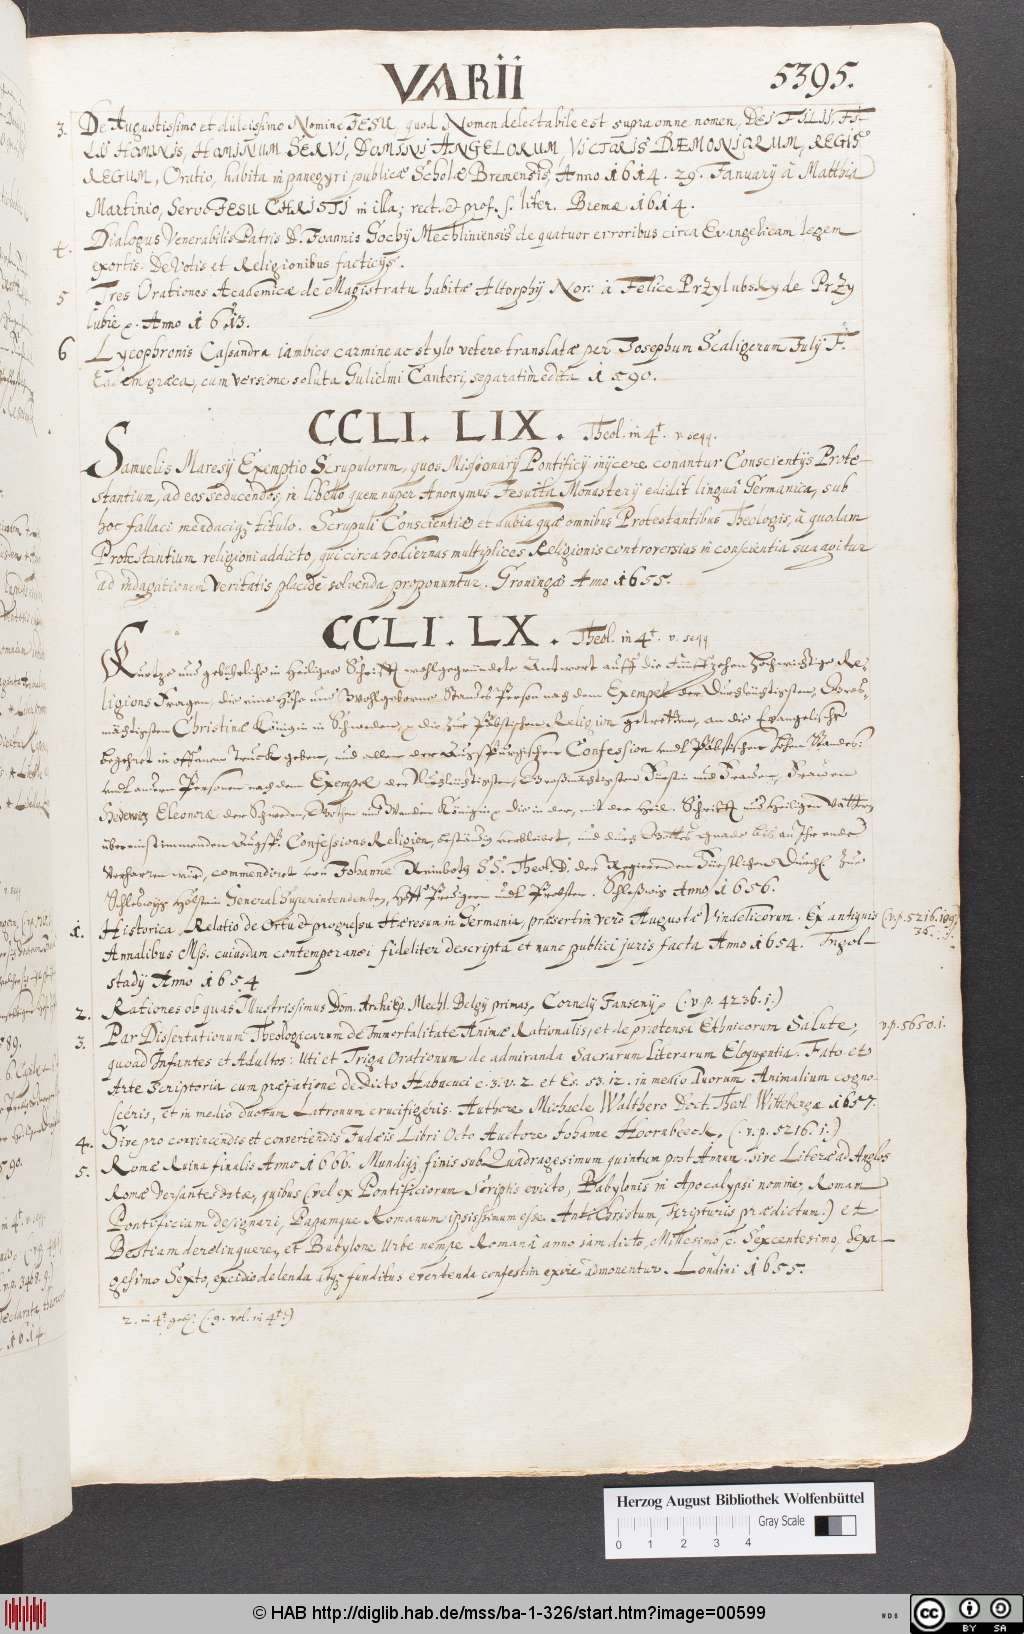 VARII
5395.
3. De Augustissimo et dulcissimo Nomine JESU, quod Nomen delectabile est supra omne nomen, DEI FILII, FI-
LII HOMINIS, HOMINUM SERVI, DOMINI ANGELORUM, VICTORIS DÆMONIORUM, REGIS
REGUM, Oratio, habita in panegyri publicæ Scholæ Bremensis, Anno 1614. 29. Januarij à Matthia
Martinio, Servo JESU CHRISTI in illa; rect. et prof. s. liter. Bremæ 1614.
4. Dialogus Venerabilis Patris D. Joannis Gochij Mechliniensis de quatuor erroribus circa Evangelicam legem
exortis. De Votis et Religionibus facticijs.
5 Tres Orationes Academicæ de Magistratu habitæ Altorphij Nor: à Felice Przylubsky de Przy
lubie. Anno 1613.
6 Lycophronis Cassandra iambico carmine ac stylo vetere translatæ per Josephum Scaligerum Julij F.
Eadem græca, cum versione soluta Gulielmi Canteri, separatim edita 1590.
CCLI. LIX. Theol. in 4t. v. seqq.
Samuelis Maresij Exemptio Scrupulorum, quos Missionarij Pontificij injicere conantur Conscientijs Prote-
stantium, ad eos seducendos, in libello quem nuper Anonymus Jesuita Monasterij edidit linguâ Germanica, sub
hoc fallaci mendaciq; titulo. Scrupuli Conscientiæ et dubia quæ omnibus Protestantibus Theologis, à quodam
Protestantium religioni addicto, qui circa hodiernas multiplices Religionis controversias in conscientia sua agitur
ad indagationem veritatis placidè solvenda proponuntur. Groningæ Anno 1655.
CCLI. LX. Theol. in 4t. v. seqq
Kurtze und gebührliche in Heiliger Schrifft wohlgegründete Antwort auff die Fünffzehen Hochwichtige Re-
ligions Fragen, die eine Hohe und Wohlgeborne Standes Person nach dem Exempel der Durchlüchtigsten, Groß-
mächtigsten Christinæ Königin in Schweden, die zur Päbstischen Religion getretten, an die Evangelische
begehret in offenem Truck geben, und allen der Augspurgischen Confession und Päbstischen Hohen Standes
und andern Personen nach dem Exempel der Durchlüchtigsten, Großmächtigsten Fürstin und Frauen, Frauen
Hedewig Eleonoræ der Schweden, Gothen und Wenden Königin, die in der, mit der Heil. Schrifft und Heiligen Vätter
übereinstimmenden Augsp. Confessions Religion, beständig verbleibet, und durch Gottes Gnade biß an Ihr ende
verharren wird, commendiret von Johanne Reinboth S.S. Theol. D. der Regierenden Fürstlichen Durchl. zur
Schleswig Holstein General Superintendenten, Hoff Predigern und Probsten. Schleßwig Anno 1656.
1. Historica Relatio de Ortu et progressu Hæresum in Germania, præsertim verò Augustæ Vindelicorum. Ex antiquis (v.p. 5216. 199
36. 3.
Annalibus Mss. cuiusdam contemporanei fideliter descripta et nunc publici juris facta Anno 1654. Ingol-
stadij Anno 1654
2. Rationes ob quas Illustrissimus Dom. Archiep. Mechl. Belgij primas, Cornelij Jansenij, (: v. p. 4236. 1 :)
3. Par Dissertationum Theologicarum de Immortalitate Animæ Rationalis, et de prætensa Ethnicorum Salute; v.p. 5650. 1.
quoad Infantes et Adultos: uti et Triga Orationum de admiranda Sacrarum Literarum Eloquentia. Fato et
Arte Scriptoria cum præfatione de dicto Habacuci c. 3. v. 2. et Es. 53. 12. in medio duorum Animalium cogno-
sceris, et in medio duorum Latronum crucifigeris. Authore Michaele Walthero Doct. Theol. Wittebergæ 1657.
4. Sive pro convincendis et convertendis Judæis Libri Octo Auctore Johanne Hoornbeeck. (: v. p. 5216. 1 :)
5. Romæ Ruina finalis Anno 1666. Mundiq; finis sub Quadragesimum quintum post Annum. sive Literæ ad Anglos
Romæ versantes datæ, quibus (vel ex Pontificiorum scriptis evicto, Babylonis in Apocalypsi nomine, Romam
Pontificiam designari, Papamque Romanum ipsissimum esse AntiChristum, scripturis prædictum.) et
Bestiam derelinquere, et Babylone Urbe nempe Romana anno iam dicto, Millesimo, c. Sexcentesimo, Sexa-
gesimo Sexto, excidio delenda atq; funditus evertenda confestim exire admonentur. Londini 1655.
Herzog August Bibliothek Wolfenbüttel
Gray Scale
0 1 2 3 4
© HAB http://diglib.hab.de/mss/ba-1-326/start.htm?image=00599
cc BY SA